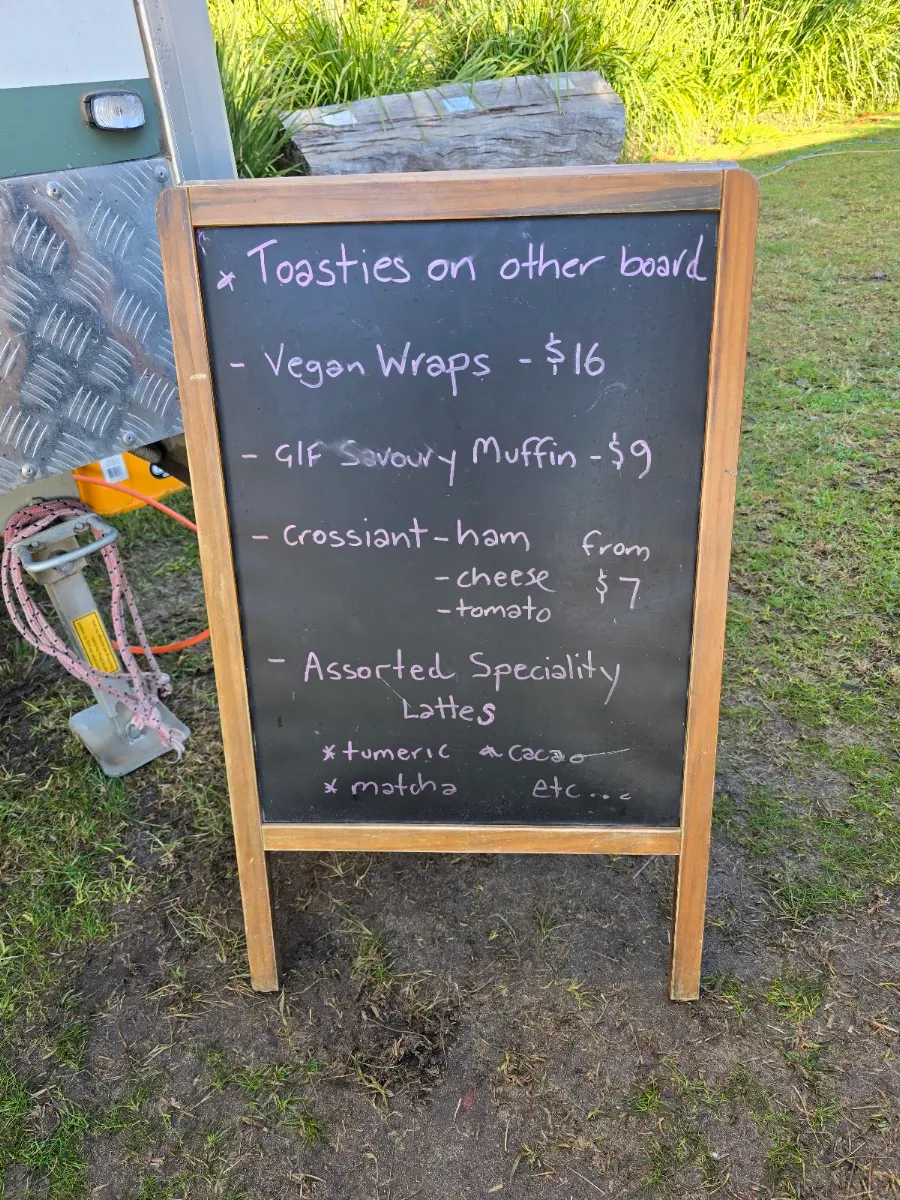 * Toasties on other board
- Vegan Wraps - $16
- G/F Savoury Muffin - $9
- Crossiant - ham from
- cheese $7
- tomato
- Assorted Speciality
Lattes
* tumeric * cacao
* matcha etc...